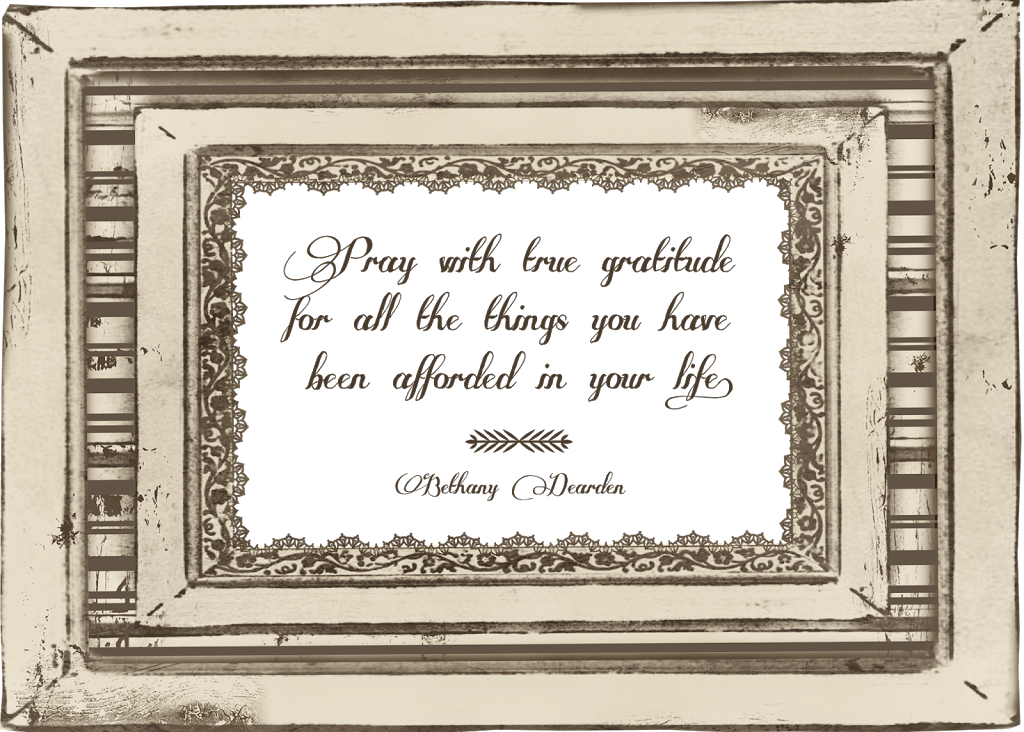 Pray with true gratitude
for all the things you have
been afforded in your life
Bethany Dearden